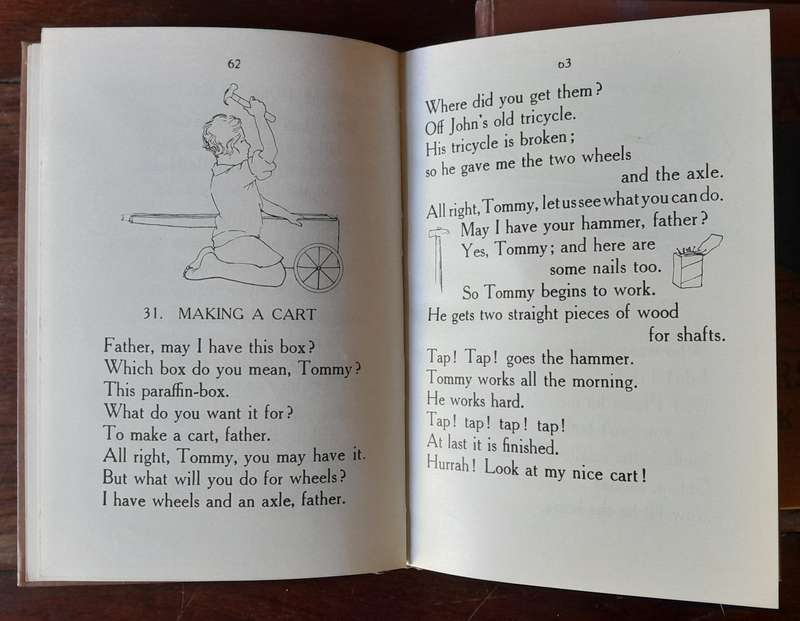 62
31. MAKING A CART
Father, may I have this box?
Which box do you mean, Tommy?
This paraffin-box.
What do you want it for?
To make a cart, father.
All right, Tommy, you may have it.
But what will you do for wheels?
I have wheels and an axle, father.
63
Where did you get them?
Off John's old tricycle.
His tricycle is broken;
so he gave me the two wheels
and the axle.
All right, Tommy, let us see what you can do.
May I have your hammer, father?
Yes, Tommy; and here are
some nails too.
So Tommy begins to work.
He gets two straight pieces of wood
for shafts.
Tap! Tap! goes the hammer.
Tommy works all the morning.
He works hard.
Tap! tap! tap! tap!
At last it is finished.
Hurrah! Look at my nice cart!